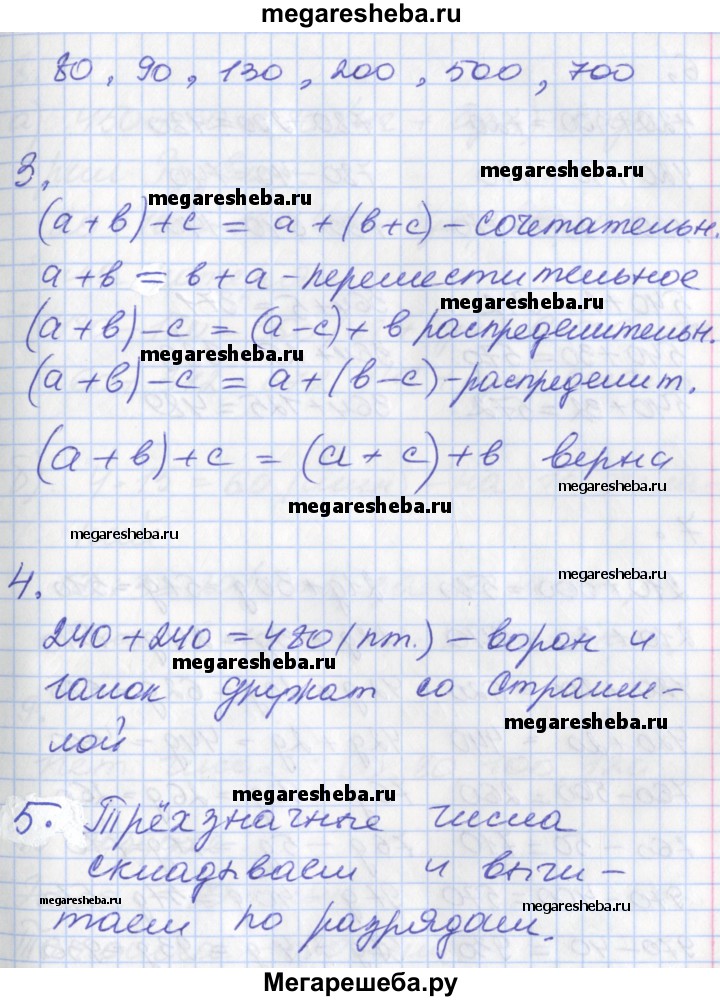 megaresheba.ru
80, 90, 130, 200, 500, 700
3.
megaresheba.ru
megaresheba.ru
(а+в)+с = а+(в+с) – сочетательн.
а+в = в+а – переместительное
megaresheba.ru
(а+в)–с = (а–с)+в распределительн.
megaresheba.ru
(а+в)–с = а+(в–с) – распределит.
(а+в)+с = (а+с)+в верна
megaresheba.ru
megaresheba.ru
megaresheba.ru
4.
megaresheba.ru
240+240=480 (пт.) – ворон и
megaresheba.ru
галок дружат со Страши–
megaresheba.ru
лой
megaresheba.ru
5. Трёхзначные числа
складываем и вычи–
megaresheba.ru
megaresheba.ru
таем по разрядам.
Мегарешеба.ру